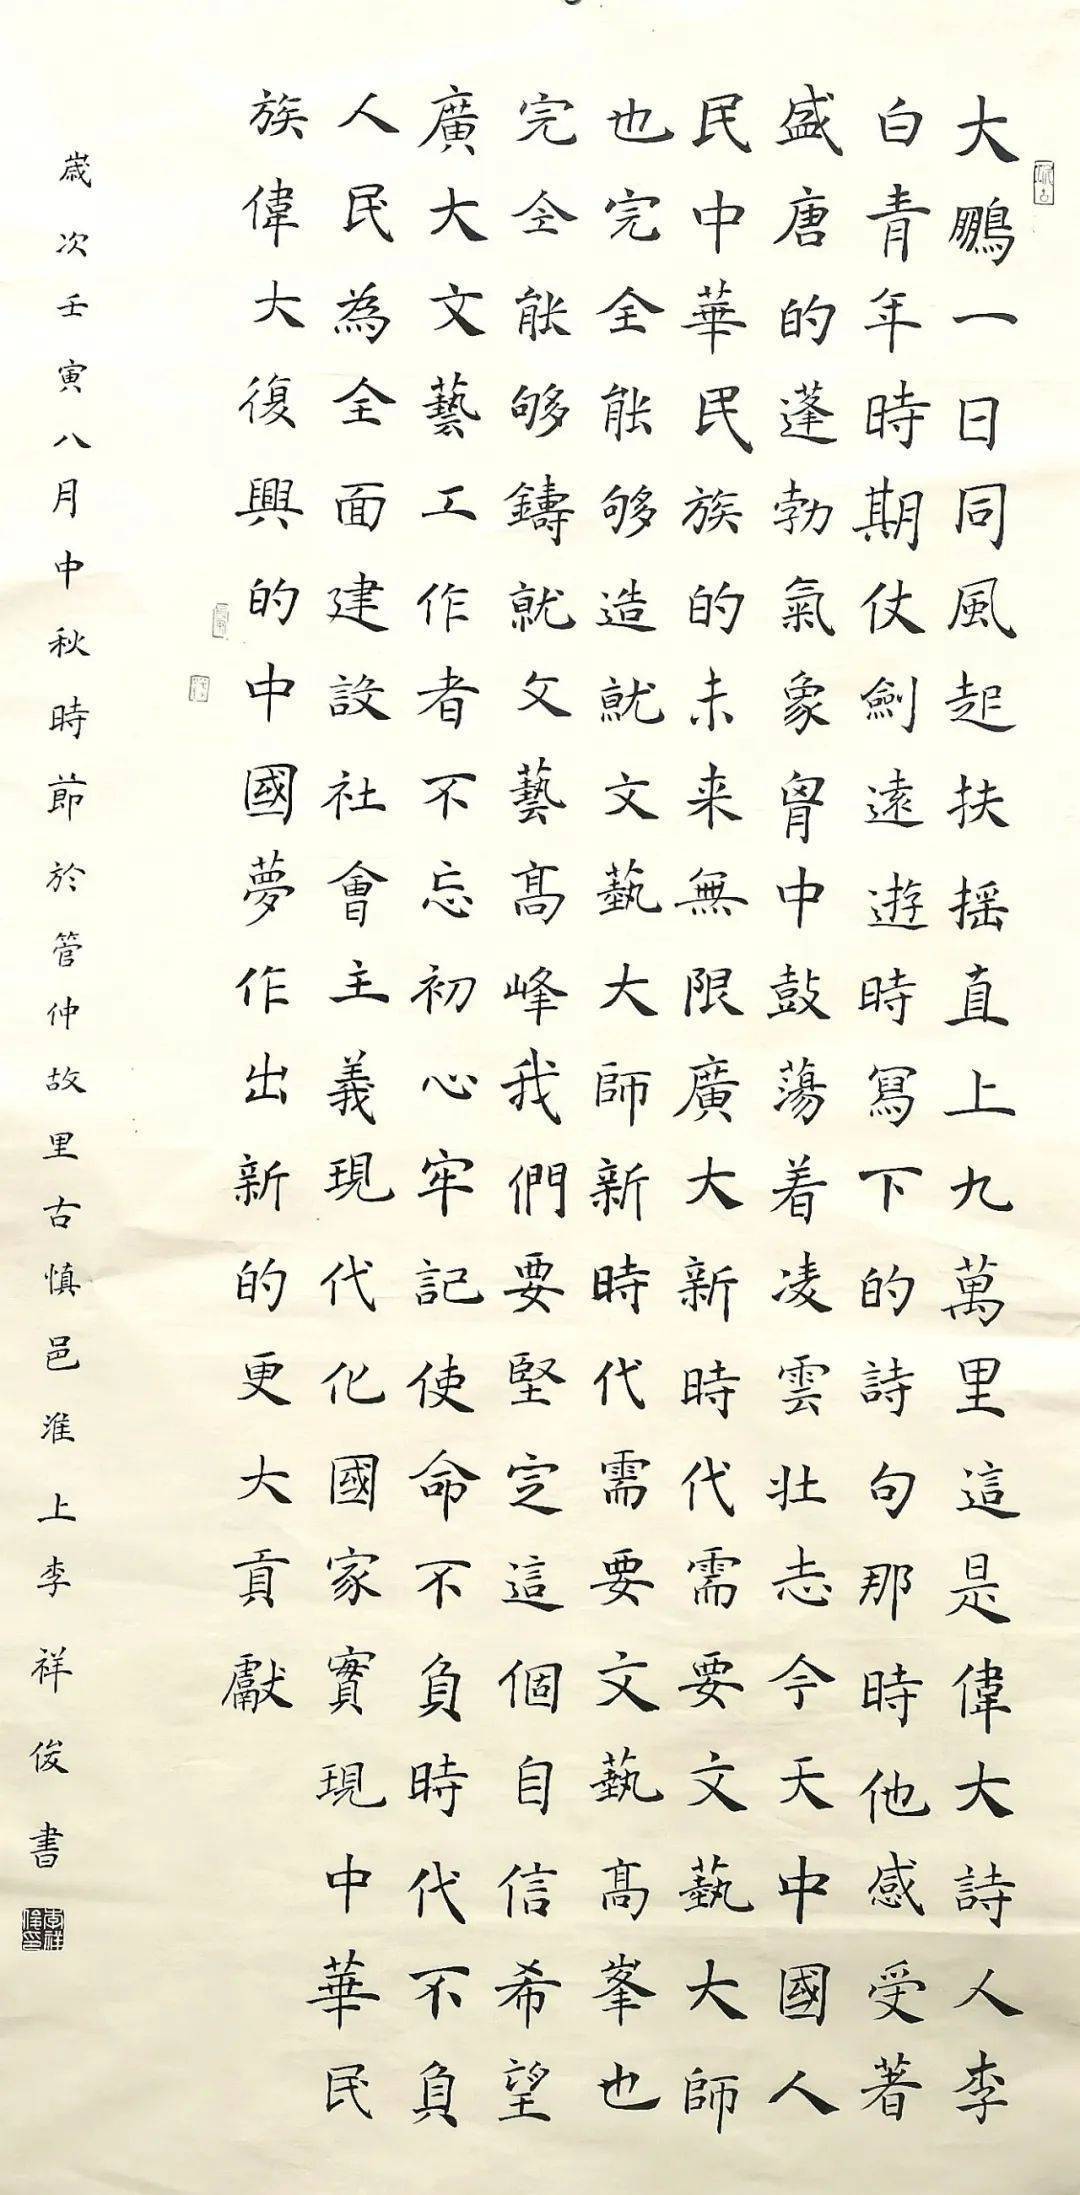 大鵬一日同風起扶摇直上九萬里這是偉大詩人李
白青年時期仗劍遠遊時寫下的詩句那時他感受著
盛唐的蓬勃氣象胷中鼓蕩着凌雲壯志今天中國人
民中華民族的未来無限廣大新時代需要文藝大師
也完全能够造就文藝大師新時代需要文藝高峯也
完全能够鑄就文藝高峰我們要堅定這個自信希望
廣大文藝工作者不忘初心牢記使命不負時代不負
人民為全面建設社會主義現代化國家實現中華民
族偉大復興的中國夢作出新的更大貢獻
歲次壬寅八月中秋時節於管仲故里古慎邑淮上李祥俊書